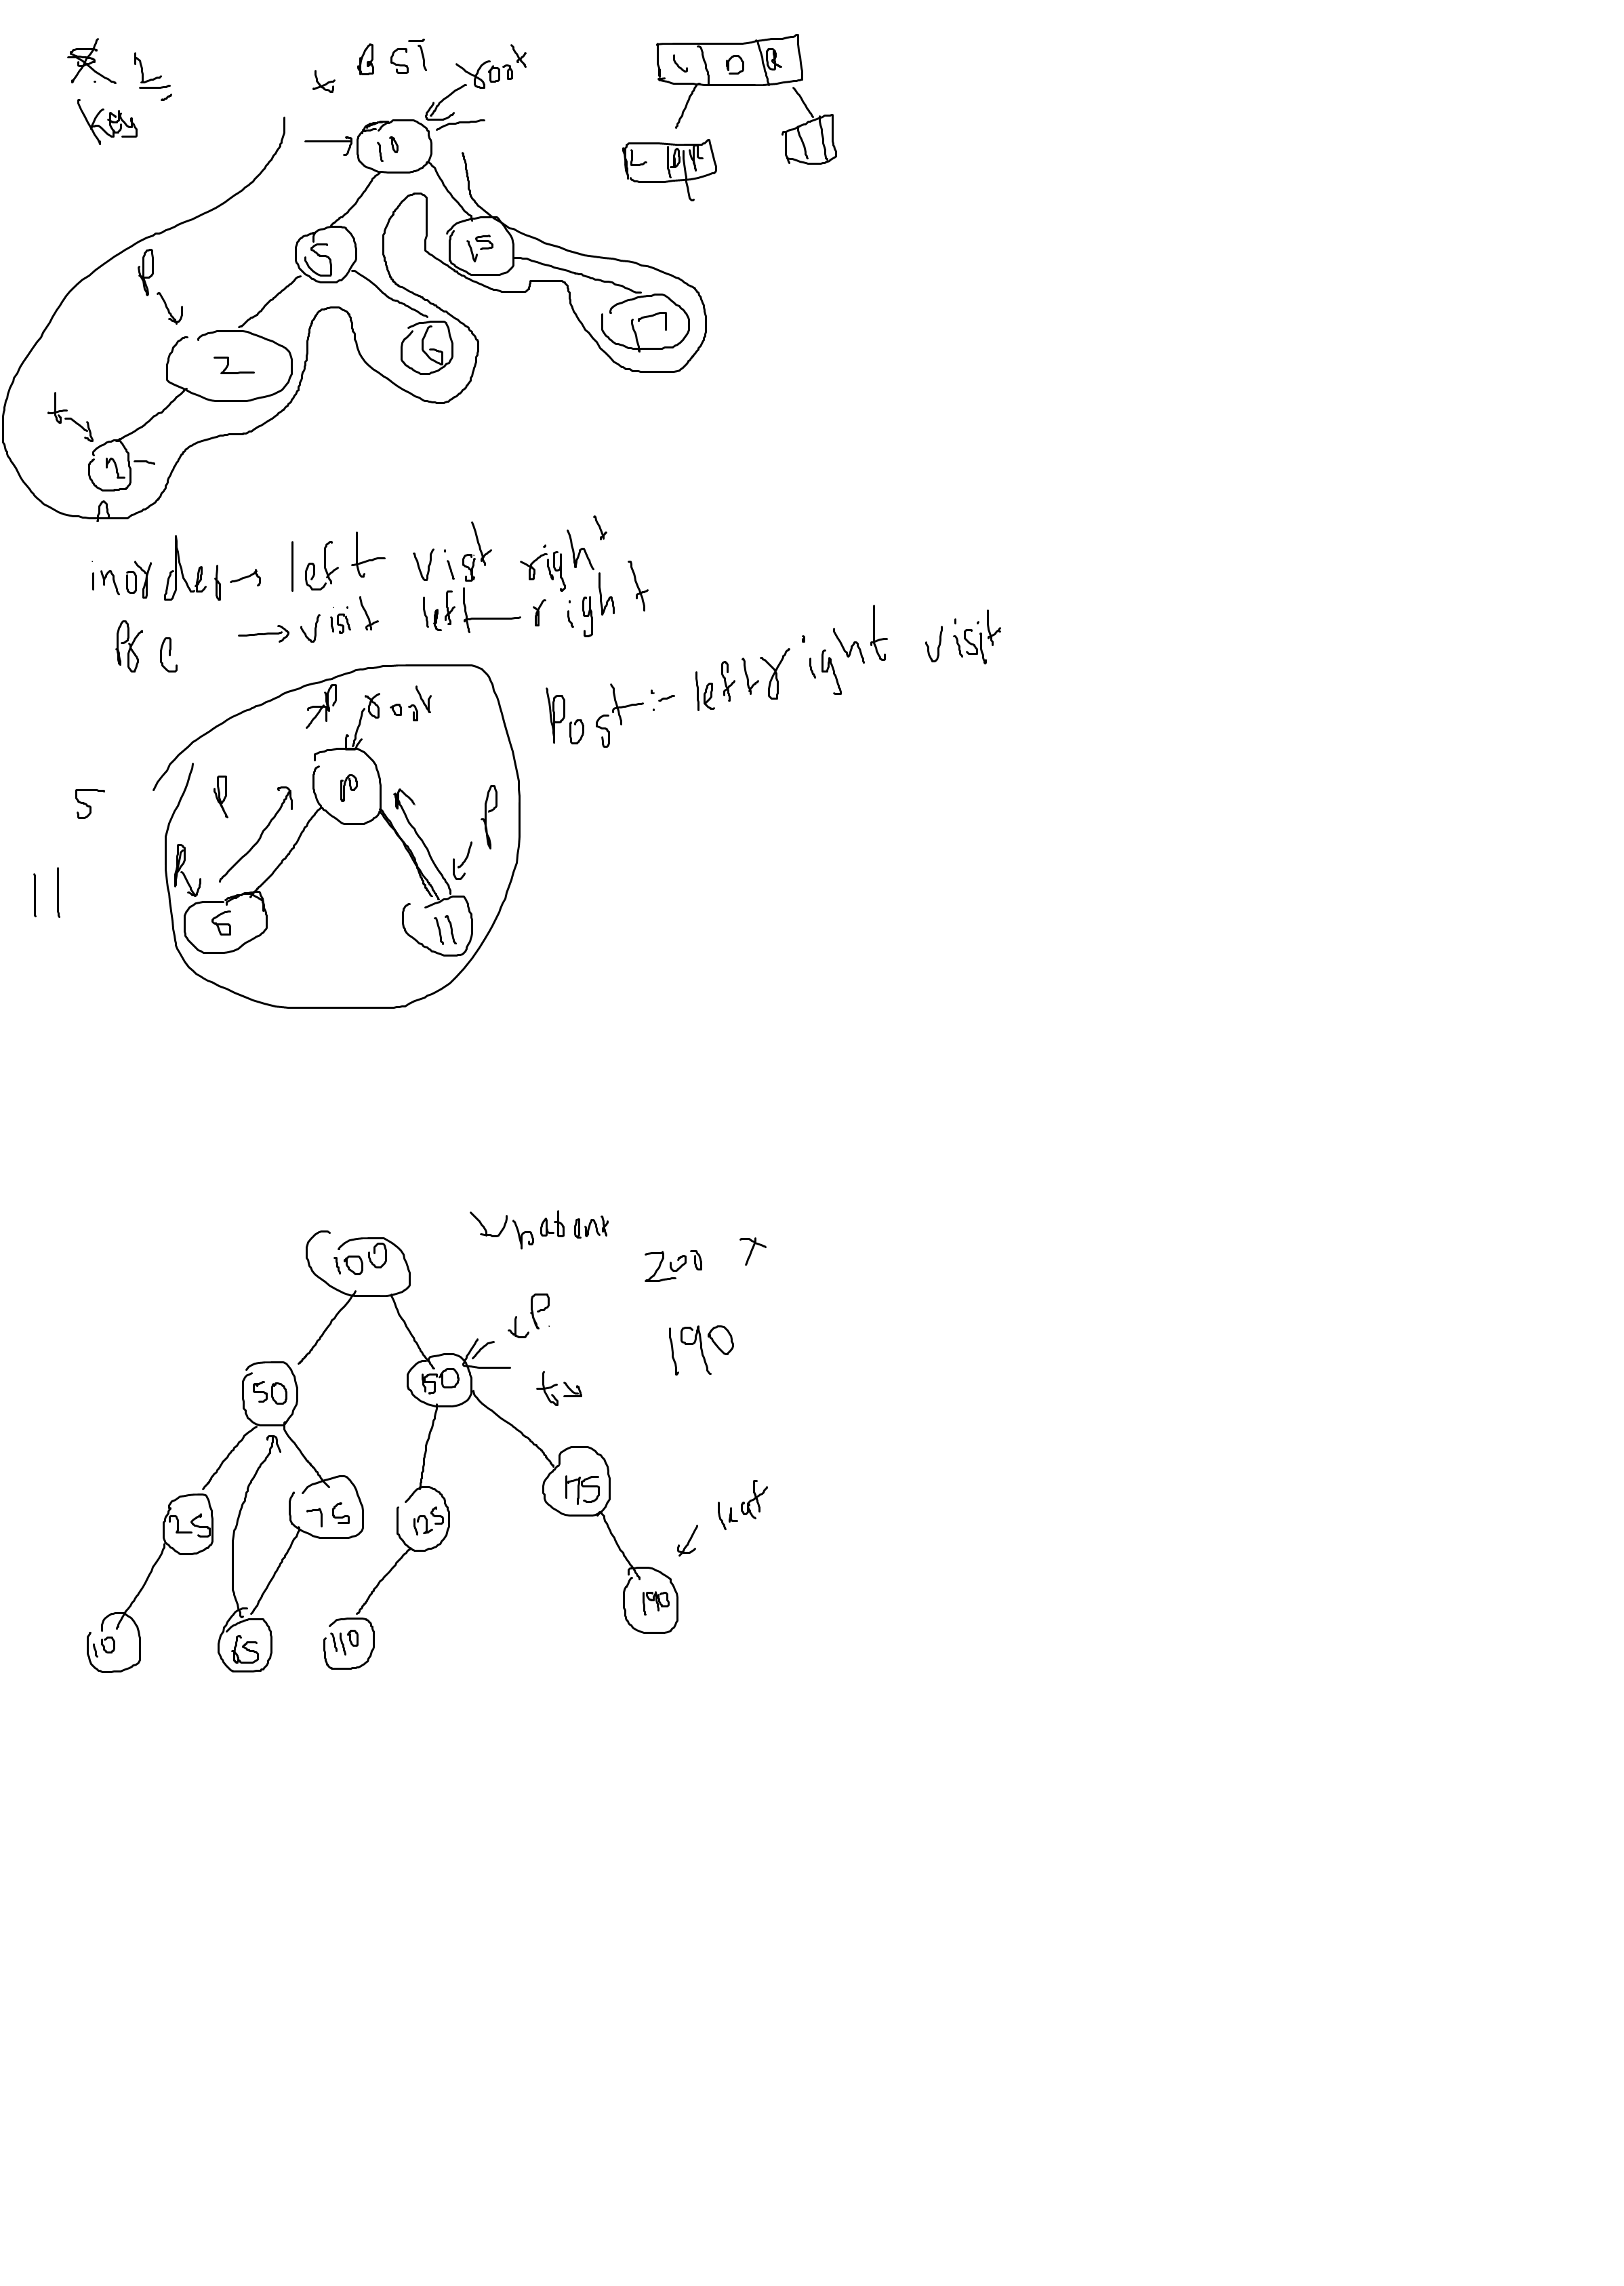 2
* BST root
L D R
Key
10
L D R
5 15
P
2 6 17
t
2
inorder → left visit right
Pre → visit left right
Post :- left right visit
P root
5 P 10 P
11 P
5 11
100
200 x
P
190
50 150
t
25 75 125 175
leaf
10 65 110 190